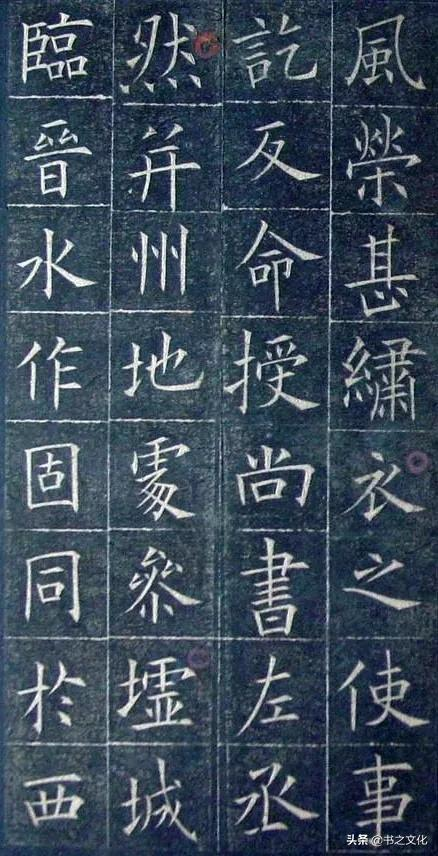 風榮甚繡衣之使事
訖反命授尚書左丞
然并州地處參墟城
臨晉水作固同於西
头条 @书之文化